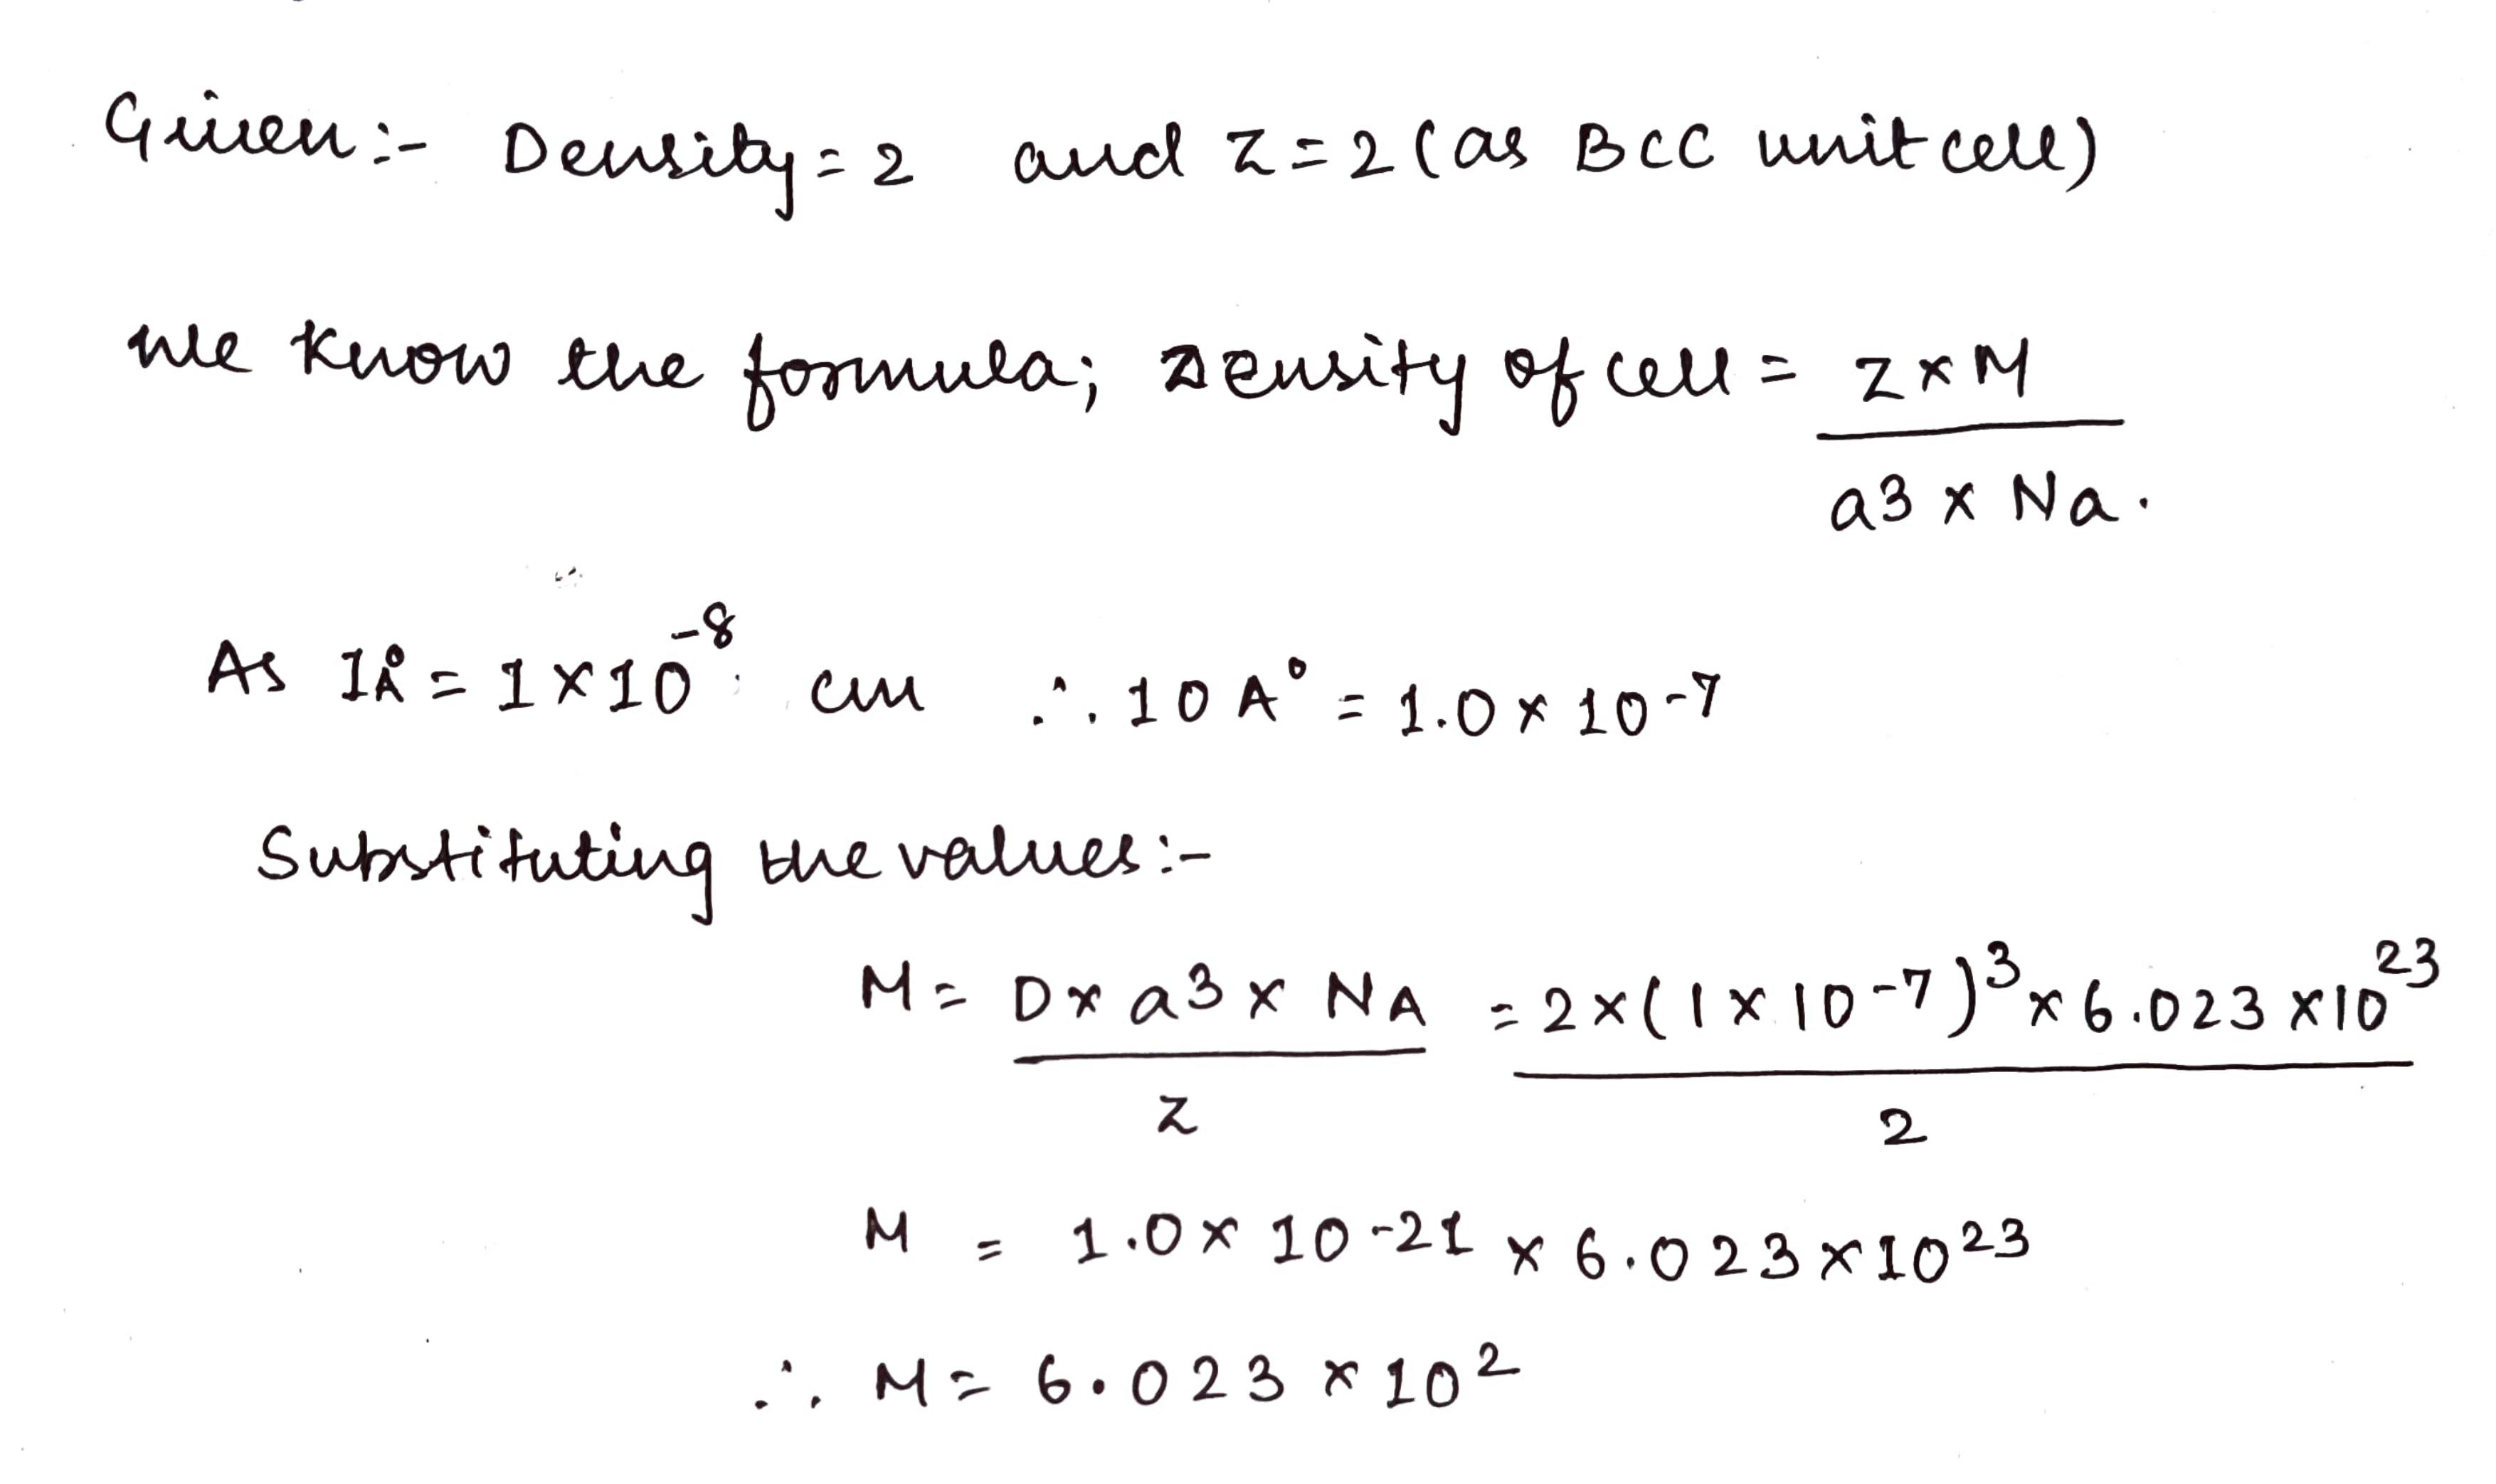 Given :- Density = 2 and Z = 2 (as BCC unit cell)
We know the formula; Density of cell = Z x M
a3 x Na.
As 1Å = 1 x 10⁻⁸ cm ∴ 10 A° = 1.0 x 10-7
Substituting the values :-
M = D x a3 x NA = 2 x (1 x 10-7)³ x 6.023 x 10²³
Z 2
M = 1.0 x 10-21 x 6.023 x 10²³
∴ M = 6.023 x 10²